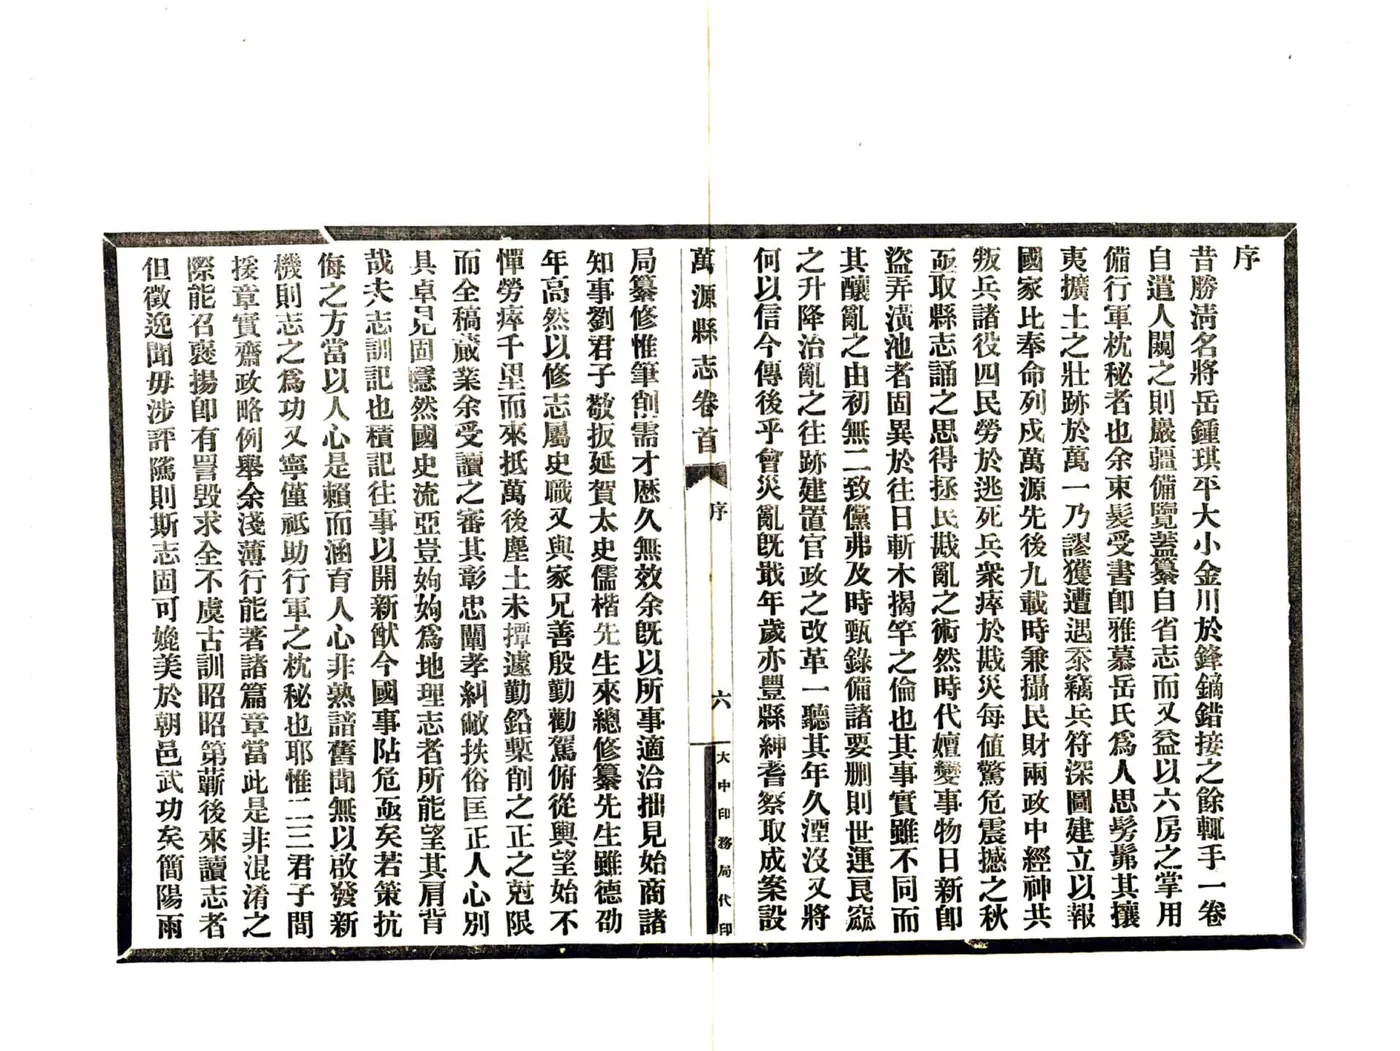 序
昔勝淸名將岳鍾琪平大小金川於鋒鏑錯接之餘輒手一卷
自遣人闞之則嚴疆備覽蓋纂自省志而又益以六房之掌用
備行軍枕秘者也余束髮受書卽雅慕岳氏爲人思髣髴其攘
夷擴土之壯跡於萬一乃謬獲遭遇忝竊兵符深圖建立以報
國家比奉命列戍萬源先後九載時兼攝民財兩政中經神共
叛兵諸役四民勞於逃死兵衆瘁於戡災每値驚危震撼之秋
亟取縣志誦之思得拯民戡亂之術然時代嬗變事物日新卽
盜弄潢池者固異於往日斬木揭竿之倫也其事實雖不同而
其釀亂之由初無二致儻弗及時甄錄備諸要删則世運艮窳
之升降治亂之往跡建置官政之改革一聽其年久湮沒又將
何以信今傳後乎會災亂旣戢年歲亦豐縣紳耆察取成案設
萬源縣志卷首
序
六
大中印務局代印
局纂修惟筆削需才歷久無效余旣以所事適治拙見始商諸
知事劉君子敬扳延賀太史儒楷先生來總修纂先生雖德劭
年高然以修志屬史職又與家兄善殷勤勸駕俯從輿望始不
憚勞瘁千里而來抵萬後塵土未撢遽勤鉛槧削之正之尅限
而全稿蕆業余受讀之審其彰忠闡孝糾敝抶俗匡正人心別
具卓見固穩然國史流亞豈姁姁爲地理志者所能望其肩背
哉夫志訓記也積記往事以開新猷今國事阽危亟矣若策抗
侮之方當以人心是賴而涵有人心非熟諳舊聞無以啟發新
機則志之爲功又寧僅祗助行軍之枕秘也耶惟二三君子間
援章實齋政略例舉余淺薄行能著諸篇章當此是非混淆之
際能召襃揚卽有詈毀求全不虞古訓昭昭第蘄後來讀志者
但徵逸聞毋涉評隲則斯志固可媲美於朝邑武功矣簡陽雨